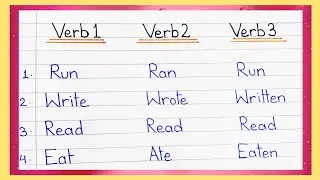 Verb 1 Verb 2 Verb 3
1. Run Ran Run
2. Write Wrote Written
3. Read Read Read
4. Eat Ate Eaten